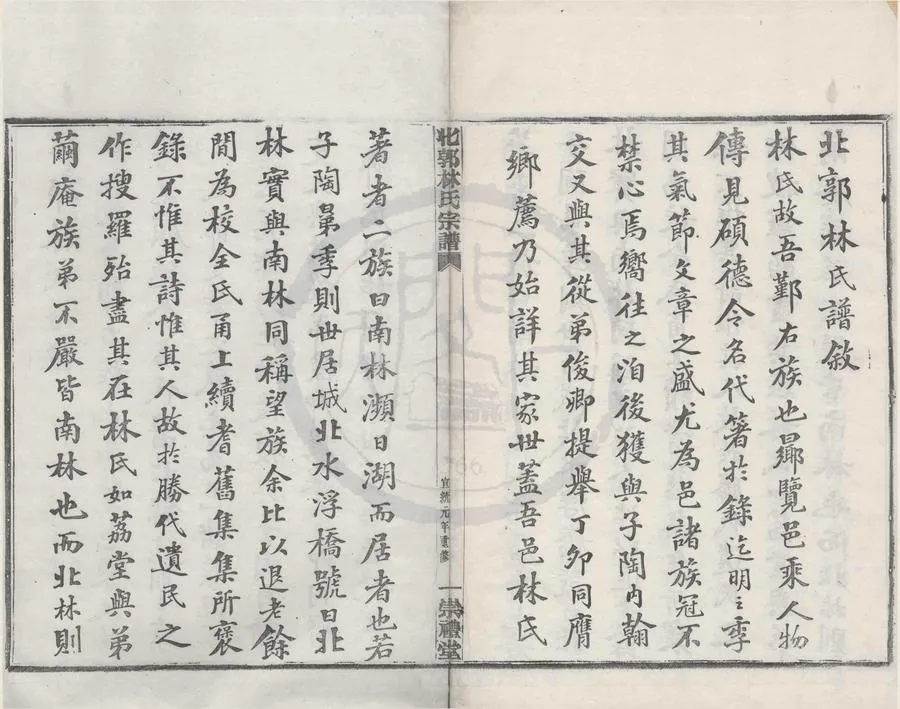 北郭林氏譜敘
林氏故吾鄞右族也曏覽邑乘人物
傳見碩德令名代著於錄迄明之季
其氣節文章之盛尤為邑諸族冠不
禁心焉嚮往之洎後獲與子陶內翰
交又與其從弟俊卿提舉丁卯同膺
鄉薦乃始詳其家世蓋吾邑林氏
北郭林氏宗譜
宣統元年重修
一
崇禮堂
著者二族曰南林瀕日湖而居者也若
子陶弟季則世居城北水浮橋號曰北
林實與南林同稱望族余比以退老餘
閒為校全氏甬上續耆舊集集所褒
錄不惟其詩惟其人故於勝代遺民之
作搜羅殆盡其在林氏如荔堂與弟
繭庵族弟不嚴皆南林也而北林則